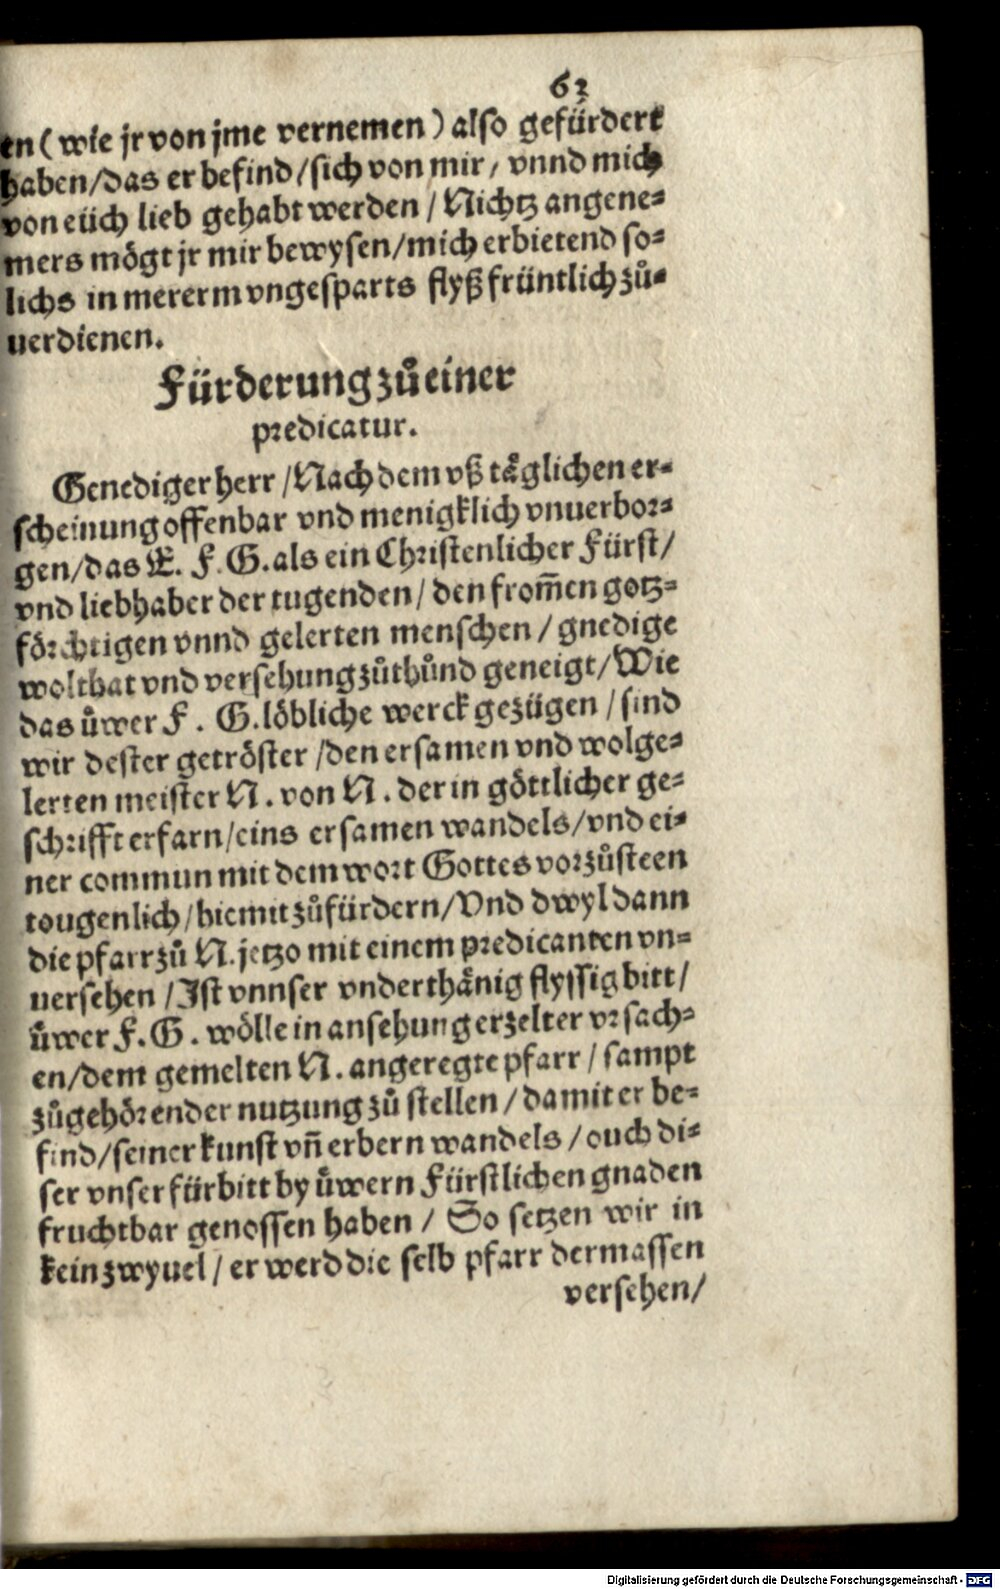 62
en (wie jr von jme vernemen) also gefürdert
haben/das er befind/sich von mir/ vnnd mich
von eüch lieb gehabt werden/Nichtz angene⸗
mers mögt jr mir bewysen/mich erbietend so⸗
lichs in mererm vngesparts flyß früntlich zů⸗
uerdienen.
Fürderung zů einer
predicatur.
Genediger herr/Nach dem vß täglichen er⸗
scheinung offenbar vnd menigklich vnuerbor⸗
gen/das E. F. G. als ein Christenlicher Fürst/
vnd liebhaber der tugenden/den from̃en gotz⸗
förchtigen vnnd gelerten menschen/gnedige
wolthat vnd versehung zůthůnd geneigt/Wie
das üwer F. G. löbliche werck gezügen/sind
wir dester getröster/den ersamen vnd wolge⸗
lerten meister N. von N. der in göttlicher ge⸗
schrifft erfarn/eins ersamen wandels/vnd ei⸗
ner commun mit dem wort Gottes vorzůsteen
tougenlich/hiemit zůfürdern/Vnd dwyl dann
die pfarr zů N. jetzo mit einem predicanten vn⸗
uersehen/Ist vnnser vnderthänig flyssig bitt/
üwer F. G. wölle in ansehung erzelter vrsach⸗
en/dem gemelten N. angeregte pfarr/sampt
zůgehörender nutzung zů stellen/damit er be⸗
find/seiner kunst vñ erbern wandels/ouch di⸗
ser vnser fürbitt by üwern Fürstlichen gnaden
fruchtbar genossen haben/So setzen wir in
kein zwyuel/er werd die selb pfarr dermassen
versehen/
Digitalisierung gefördert durch die Deutsche Forschungsgemeinschaft - DFG